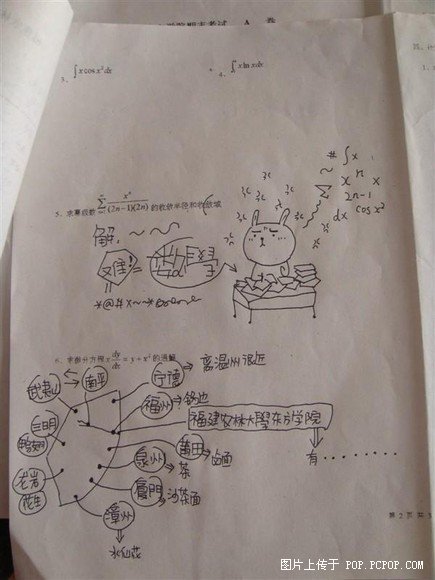 学院期末考试 A 卷
3、∫x cos x² dx
4、∫x ln x dx
5、求幂级数 ∑ xⁿ/(2n-1)(2n) 的收敛半径和收敛域
解：
难！=
*@#x~~*
# ∫x
x n x
∑ 2n-1
dx cos x²
6、求微分方程 x dy/dx = y + x² 的通解
武夷山
南平
宁德
离温州很近
三明
福州
福建农林大學东方学院
有········
莆田
卤面
泉州
茶
龙岩
花生
厦門
沙茶面
漳州
水仙花
第 2 页 共 3
图片上传于 POP.PCPOP.COM